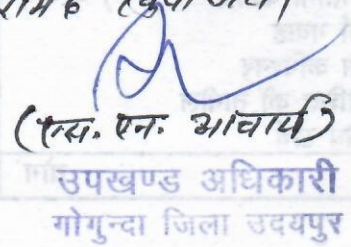 (एस. एन. आचार्य)
उपखण्ड अधिकारी
गोगुन्दा जिला उदयपुर